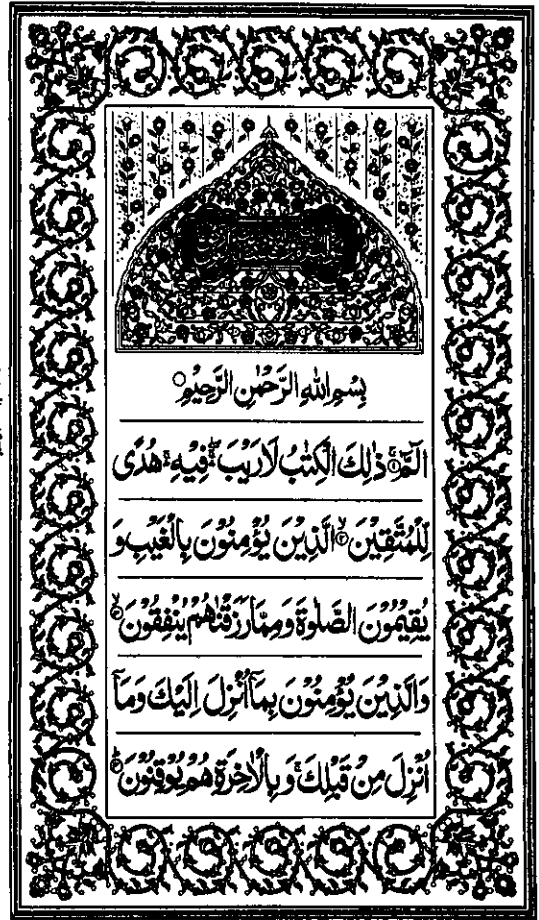 بِسْمِ اللهِ الرَّحْمٰنِ الرَّحِيْمِ
الٓمّٓ ۚ﴿۱﴾ ذٰلِكَ الْكِتٰبُ لَا رَيْبَ ۛۖ فِيْهِ ۛۚ هُدًى
لِّلْمُتَّقِيْنَ ۙ﴿۲﴾ الَّذِيْنَ يُؤْمِنُوْنَ بِالْغَيْبِ وَ
يُقِيْمُوْنَ الصَّلٰوةَ وَمِمَّا رَزَقْنٰهُمْ يُنْفِقُوْنَ ۙ﴿۳﴾
وَالَّذِيْنَ يُؤْمِنُوْنَ بِمَآ اُنْزِلَ اِلَيْكَ وَمَآ
اُنْزِلَ مِنْ قَبْلِكَ ۚ وَبِالْاٰخِرَةِ هُمْ يُوْقِنُوْنَ ؕ﴿۴﴾